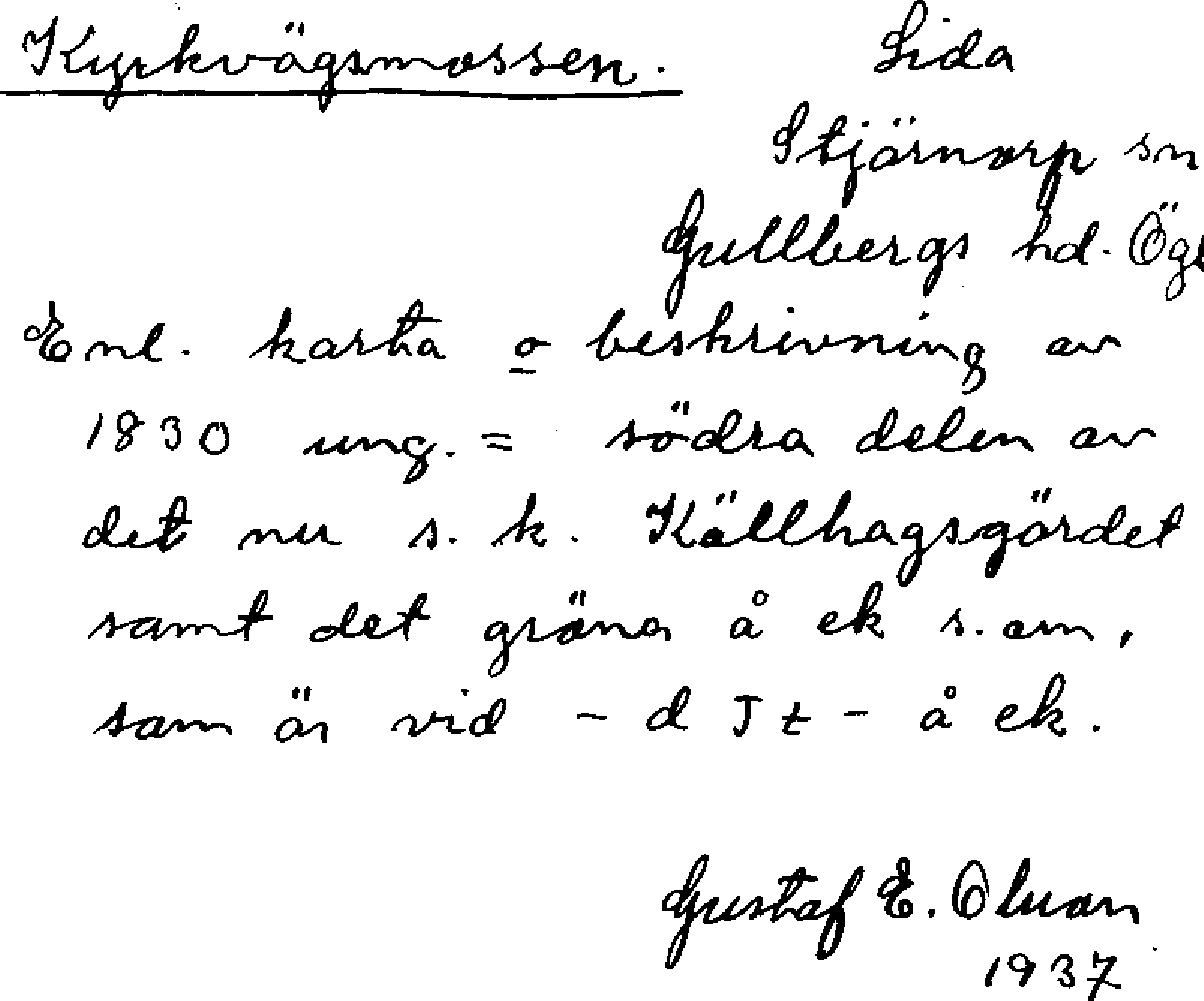 Kyrkvägsmossen. Lida
Stjärnorp sn
Gullbergs hd. Ögl
Enl. karta o beskrivning av
1830 ung. = södra delen av
det nu s. k. Källhagsgärdet
samt det gröna å ek s. om,
som är vid - d J t - å ek.
Gustaf E. Olsson
1937